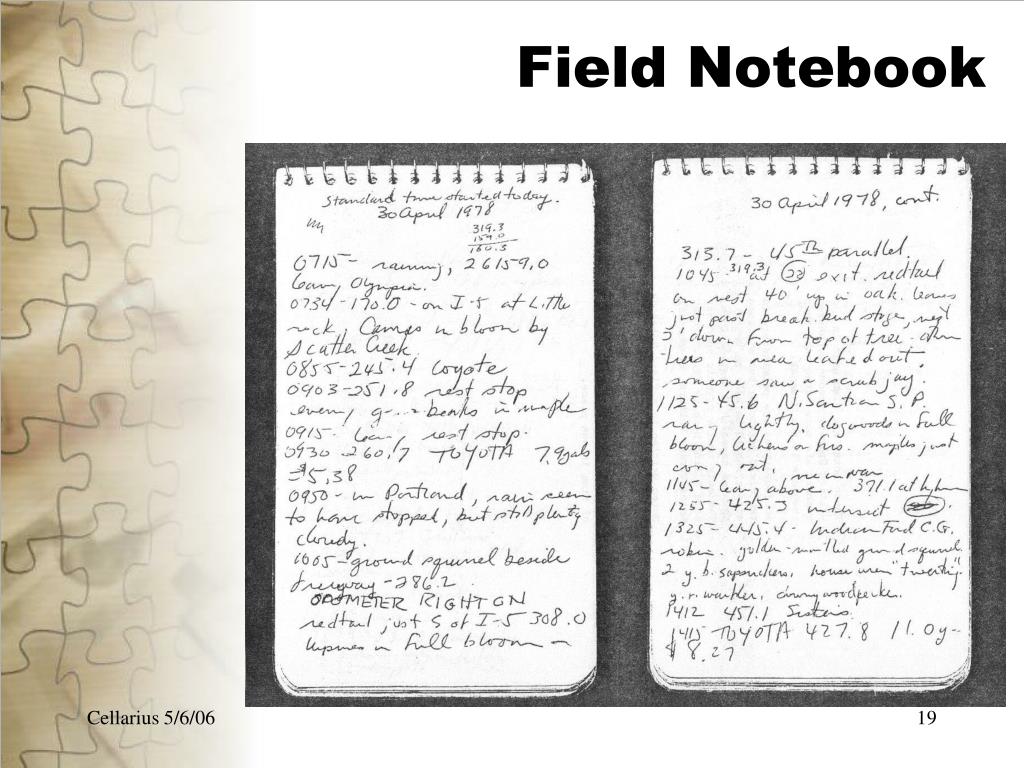 Field Notebook
Standard time started today.
30 April 1978
319.3
159.0
160.3
0715- raining, 26159.0
leaving Olympia.
0734-170.0 - on I-5 at Little
rock, Camas in bloom by
Scatter Creek.
0855-245.4 coyote
0903-251.8 rest stop
evening grosbeaks in maple
0915- leaving rest stop.
0930 -260.7 TOYOTA 7.9gals
=$5.38
0950- in Portland, rain seems
to have stopped, but still plenty
cloudy.
1005-ground squirrel beside
freeway -286.2
ODOMETER RIGHT ON
redtail just S of I-5 308.0
lupines in full bloom -
30 April 1978, cont.
313.7 - 45th parallel.
1045 319.3 at 23 exit. redtail
on nest 40' up in oak. leaves
just past break. bud stage, nest
5' down from top of tree. other
trees in area leafed out.
someone saw a scrub jay.
1125-45.6 N. Santiam S.P.
raining lightly, dogwoods in full
bloom, lichens on firs. maples just
coming out.
1145- leaving above. 371.1 at
1255-425.3 intersect
1325-445.4- Indian Ford C.G.
robin. golden-mantled ground squirrel.
2 y.b. sapsuckers, house wren "tweeting".
y.r. warbler, downy woodpecker.
1412 451.1 Sisters.
1415 TOYOTA 427.8 11.0g-
$8.27
Cellarius 5/6/06
19